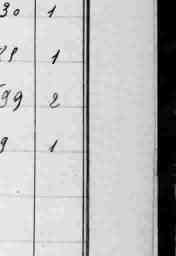 30 1
1
99 2
9 1